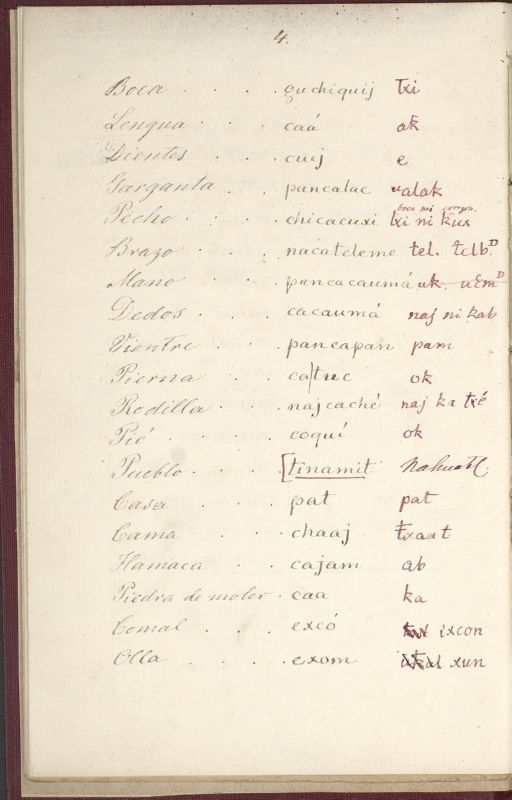 4.
Boca . . . . guchiquij txi
Lengua . . . caá ak
Dientes . . . cuej e
Garganta . . pancalac ualak
boca mi corazon.
Pecho . . . chicacuxi txi ni kux
Brazo . . . nacateleme tel. telb.D
Mano . . . pancacaumá uk
Dedos . . . cacaumá naj ni kab
Vientre . . . pancapan pam
Pierna . . . catuc ok
Rodilla . . . najcaché naj ka txé
Pié . . . coquí ok
Pueblo . . . [tinamit Nahuatl
Casa . . . pat pat
Cama . . . chaaj txaat
Hamaca . . . cajam ab
Piedra de moler . caa ka
Comal . . . excó ixcon
Olla . . . exom xun